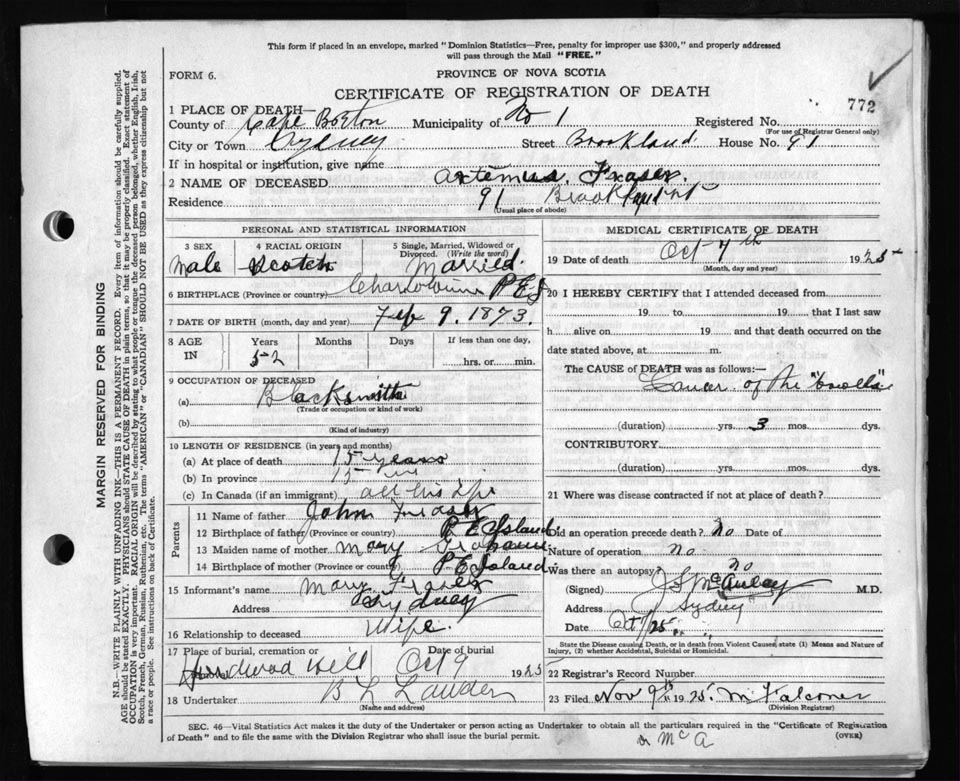 This form if placed in an envelope, marked "Dominion Statistics—Free, penalty for improper use $300," and properly addressed
will pass through the Mail "FREE."
FORM 6.
PROVINCE OF NOVA SCOTIA
CERTIFICATE OF REGISTRATION OF DEATH
772
1 PLACE OF DEATH—
County of Cape Breton Municipality of No 1 Registered No.
(For use of Registrar General only)
City or Town Sydney Street Brookland House No. 91
If in hospital or institution, give name
2 NAME OF DECEASED Artemus Fraser.
Residence 91 Brookland St
(Usual place of abode)
PERSONAL AND STATISTICAL INFORMATION
3 SEX 4 RACIAL ORIGIN 5 Single, Married, Widowed or Divorced. (Write the word)
Male Scotch Married.
6 BIRTHPLACE (Province or country) P E I
7 DATE OF BIRTH (month, day and year) Feb 9. 1873.
8 AGE IN Years Months Days If less than one day,
52 hrs. or min.
9 OCCUPATION OF DECEASED
(a) Blacksmith
(Trade or occupation or kind of work)
(b)
(Kind of industry)
10 LENGTH OF RESIDENCE (in years and months)
(a) At place of death 15 years
(b) In province 15
(c) In Canada (if an immigrant) all his life
Parents
11 Name of father John Fraser
12 Birthplace of father (Province or country) P E Island
13 Maiden name of mother Mary
14 Birthplace of mother (Province or country) P E Island
15 Informant's name Mary Fraser
Address Sydney
16 Relationship to deceased Wife.
17 Place of burial, cremation or Date of burial
Hardwood Hill Oct 9 1925
18 Undertaker B L Lauder
(Name and address)
MEDICAL CERTIFICATE OF DEATH
19 Date of death Oct 7th 1925
(Month, day and year)
20 I HEREBY CERTIFY that I attended deceased from
19 to 19 that I last saw
h alive on 19 and that death occurred on the
date stated above, at m.
The CAUSE of DEATH was as follows:—
Cancer of the
(duration) yrs. 3 mos. dys.
CONTRIBUTORY
(duration) yrs. mos. dys.
21 Where was disease contracted if not at place of death?
Did an operation precede death? No Date of
Nature of operation no
Was there an autopsy? No
(Signed) J S McAulay M.D.
Address Sydney
Date Oct /25
State the Disease causing Death, or in death from Violent Causes, state (1) Means and Nature of
Injury, (2) whether Accidental, Suicidal or Homicidal.
22 Registrar's Record Number
23 Filed Nov 9th 1925. M Falconer
(Division Registrar)
SEC. 46—Vital Statistics Act makes it the duty of the Undertaker or person acting as Undertaker to obtain all the particulars required in the "Certificate of Registration
of Death" and to file the same with the Division Registrar who shall issue the burial permit.
(OVER)
McA
MARGIN RESERVED FOR BINDING
N.B.—WRITE PLAINLY WITH UNFADING INK—THIS IS A PERMANENT RECORD. Every item of information should be carefully supplied.
AGE should be stated EXACTLY. PHYSICIANS should STATE CAUSE OF DEATH in plain terms, so that it may be properly classified. Exact statement of
OCCUPATION is very important. RACIAL ORIGIN will be described by stating to what people or tongue the deceased person belonged, whether English, Irish,
Scotch, French, German, Russian, Ruthenian, etc. The terms "AMERICAN" or "CANADIAN" SHOULD NOT BE USED as they express citizenship but not
a race or people. See instructions on back of Certificate.